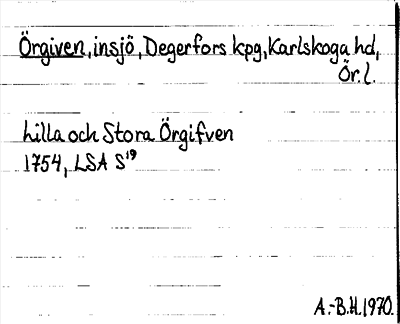 Örgiven, insjö, Degerfors kpg, Karlskoga hd,
Ör. l.
Lilla och Stora Örgifven
1754, LSA S¹⁹
A.-B.H. 1970.